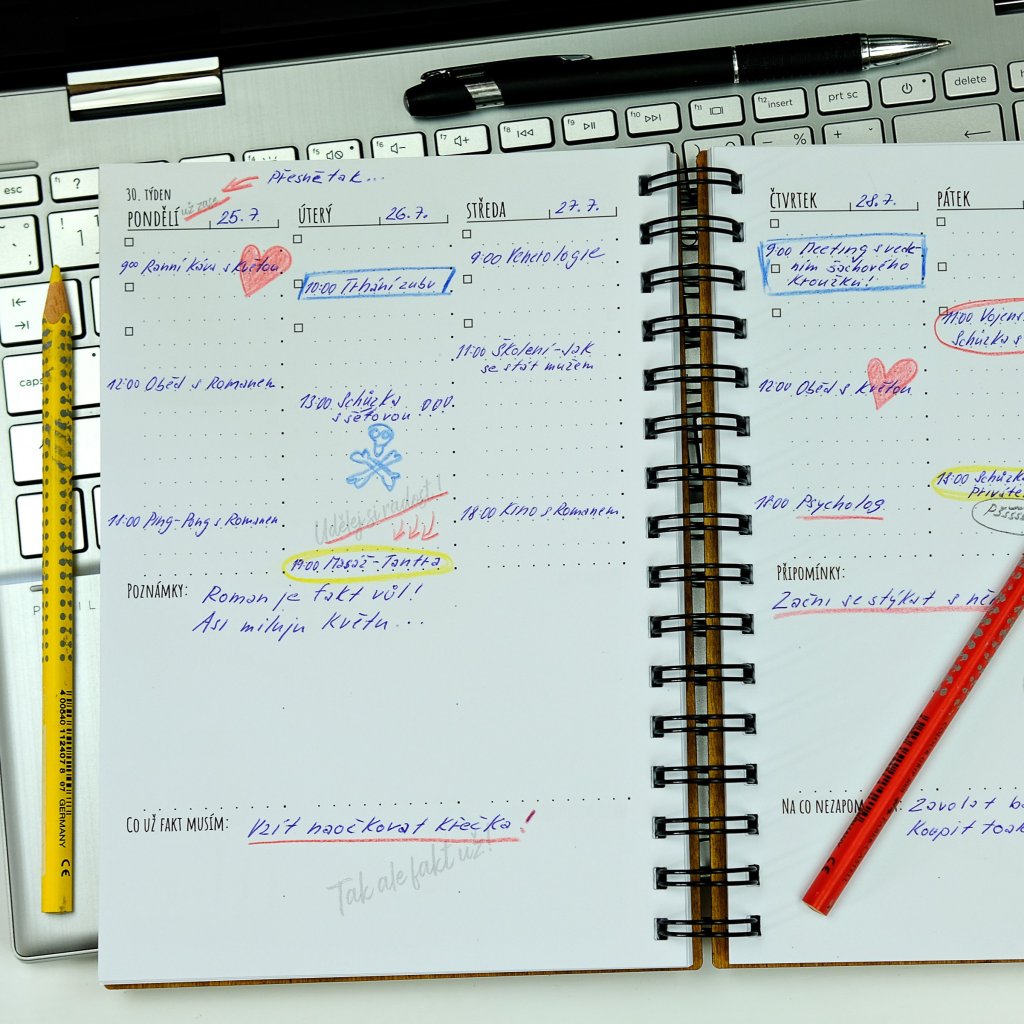 esc
f1 ?
f5
f6
f7
f8
f9
f10
f11
f12 insert
prt sc
delete
% +
caps
Přesně tak...
30. TÝDEN
už zase
PONDĚLÍ 25.7.
9:00 Ranní káva s Květou
12:00 Oběd s Romanem
18:00 Ping-Pong s Romanem
ÚTERÝ 26.7.
10:00 Trhání zubu
13:00 Schůzka
s šéfovou
Udělej si radost!
19:00 Masáž - Tantra
STŘEDA 27.7.
9:00 Venerologie
11:00 Školení - Jak
se stát mužem
18:00 Kino s Romanem
POZNÁMKY: Roman je fakt vůl!
Asi miluju Květu...
CO UŽ FAKT MUSÍM: Vzít naočkovat křečka!
Tak ale fakt už!
ČTVRTEK 28.7.
9:00 Meeting s vede-
ním šachového
kroužku!
12:00 Oběd s Květou
18:00 Psycholog
PÁTEK
11:00 Vojen
Schůzka s
18:00 Schůzka
PŘIPOMÍNKY:
Začni se stýkat s ně
NA CO NEZAPOM : Zavolat
Koupit
4 00540 112407 8 07 GERMANY CE